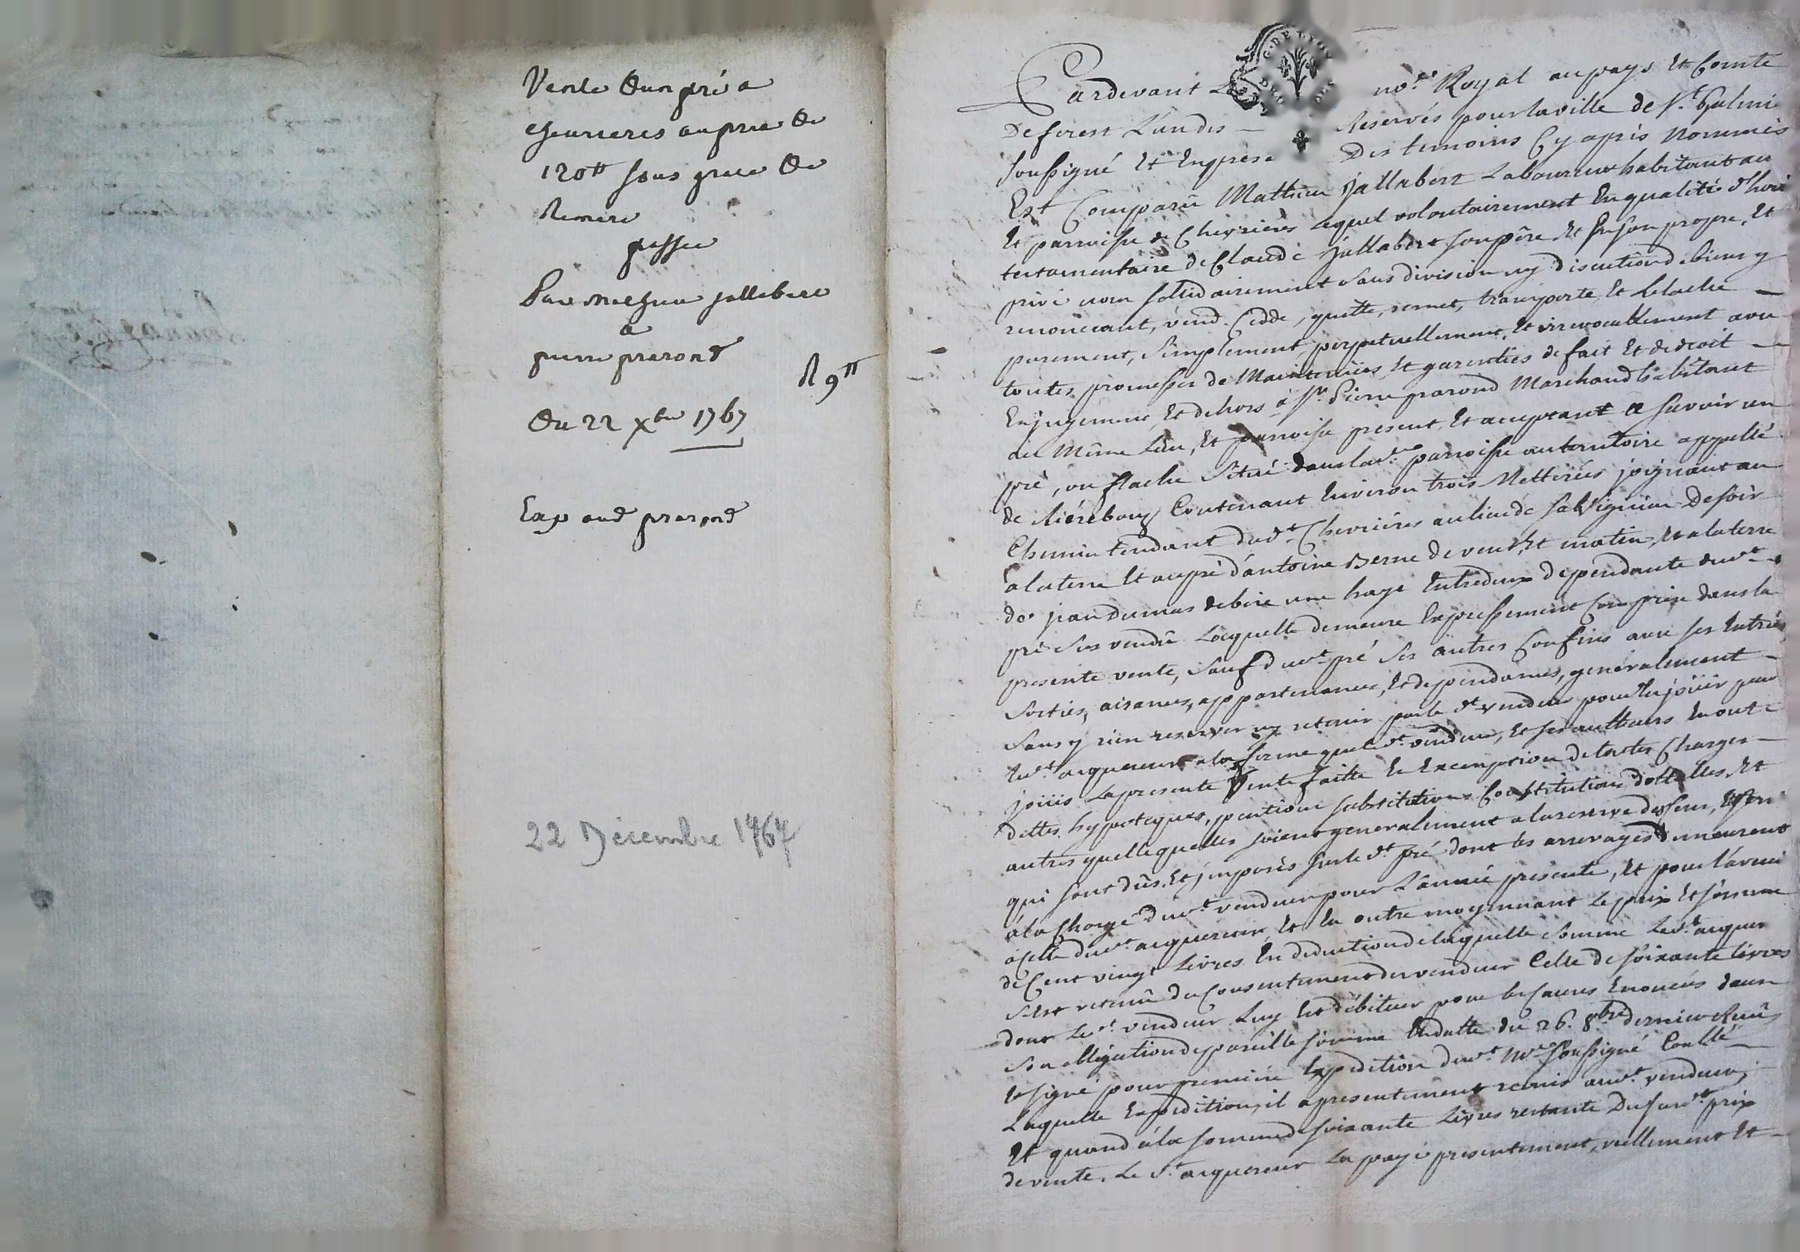 Vente dun pré a
chevrieres au prix de
120ᵗᵗ sous grace de
Remere
passée
Par mathieu jallibert
a
pierre prarond
R 9ᵗᵗ
Du 22 xbre 1767
Exp aud prarond
22 Décembre 1767
G. DE LYON
Pardevant noʳᵉ Royal au pays Et Comté
De forest reservés pour la ville de sᵗ Galmi
soussigné Et En prese Des temoins Cy après nommés
Est Comparu Mathieu Jallabert Laboureur habitant au
Et parroisse de Chevrières Lequel volontairement En qualité d'heri
testamentaire de Claude Jallabert son père, Et En son propre, Et
privé nom solidairement sans division ny discution de biens y
renoncant, vend, Cedde, quitte, remet, transporte Et Relache
purement, simplement, perpetuellement, Et irrevocablement avec
toutes promesses de Maintenües Et garenties de fait Et de droit
En jugement, Et dehors a sʳ Pierre prarond Marchand habitant
au Même Lieu, Et parroisse present, Et acceptant a savoir un
pré, ou flache situé dans lad. parroisse au territoire appellé
de Contenant Environ trois Metterées joignant au
Chemin tendant dudᵗ Chevrières au lieu de De soir
a la terre Et au pré d'antoine Berne de vent, Et matin, Et a la terre
de jean Dumas de bize une haye Entredeux dépendante dudᵗ
pré sus vendû Laquelle demeure Expressement Comprise dans la
presente vente, sauf dudᵗ pré ses autres Confins avec ses Entrées
sorties, aisances, appartenances, Et dépendances, généralement
sans y rien reserver ny retenir par le dᵗ vendeur pour En joüir par
Ledᵗ acquereur a la forme que le dᵗ vendeur, Et ses autheurs En ont
joüis La presente vente faitte En Exemption de toutes Charges
dettes, hypoteques, pention substitution Constitution dottalles, Et
autres quelle quelles soient generalement a la reserve des Cens, Et servi
qui sont dûs, Et imposés sur le dᵗ pré dont les arrerages demeurent
à la Charge dudᵗ vendeur pour L'année presente, Et pour l'aveni
à Celle dudᵗ acquereur, Et En outre moyennant Le prix Et somme
de Cent vingt Livres En deduction de laquelle somme Ledᵗ acquer
s'est retenu du Consentement du vendeur Celle de soixante livres
dont Le dᵗ vendeur Luy Est débiteur pour les Causes Enoncées dans
son obligation de pareille somme En datte du 26. 8bre dernier Reçüe
Et signé pour premiere Expedition dudᵗ Noʳᵉ soussigné Conllé
Laquelle Expedition il a presentement remis audᵗ vendeur,
Et quand à la somme de soixante Livres restante Du susdᵗ prix
de vente, Le sʳ acquereur La payé presentement, reellement Et